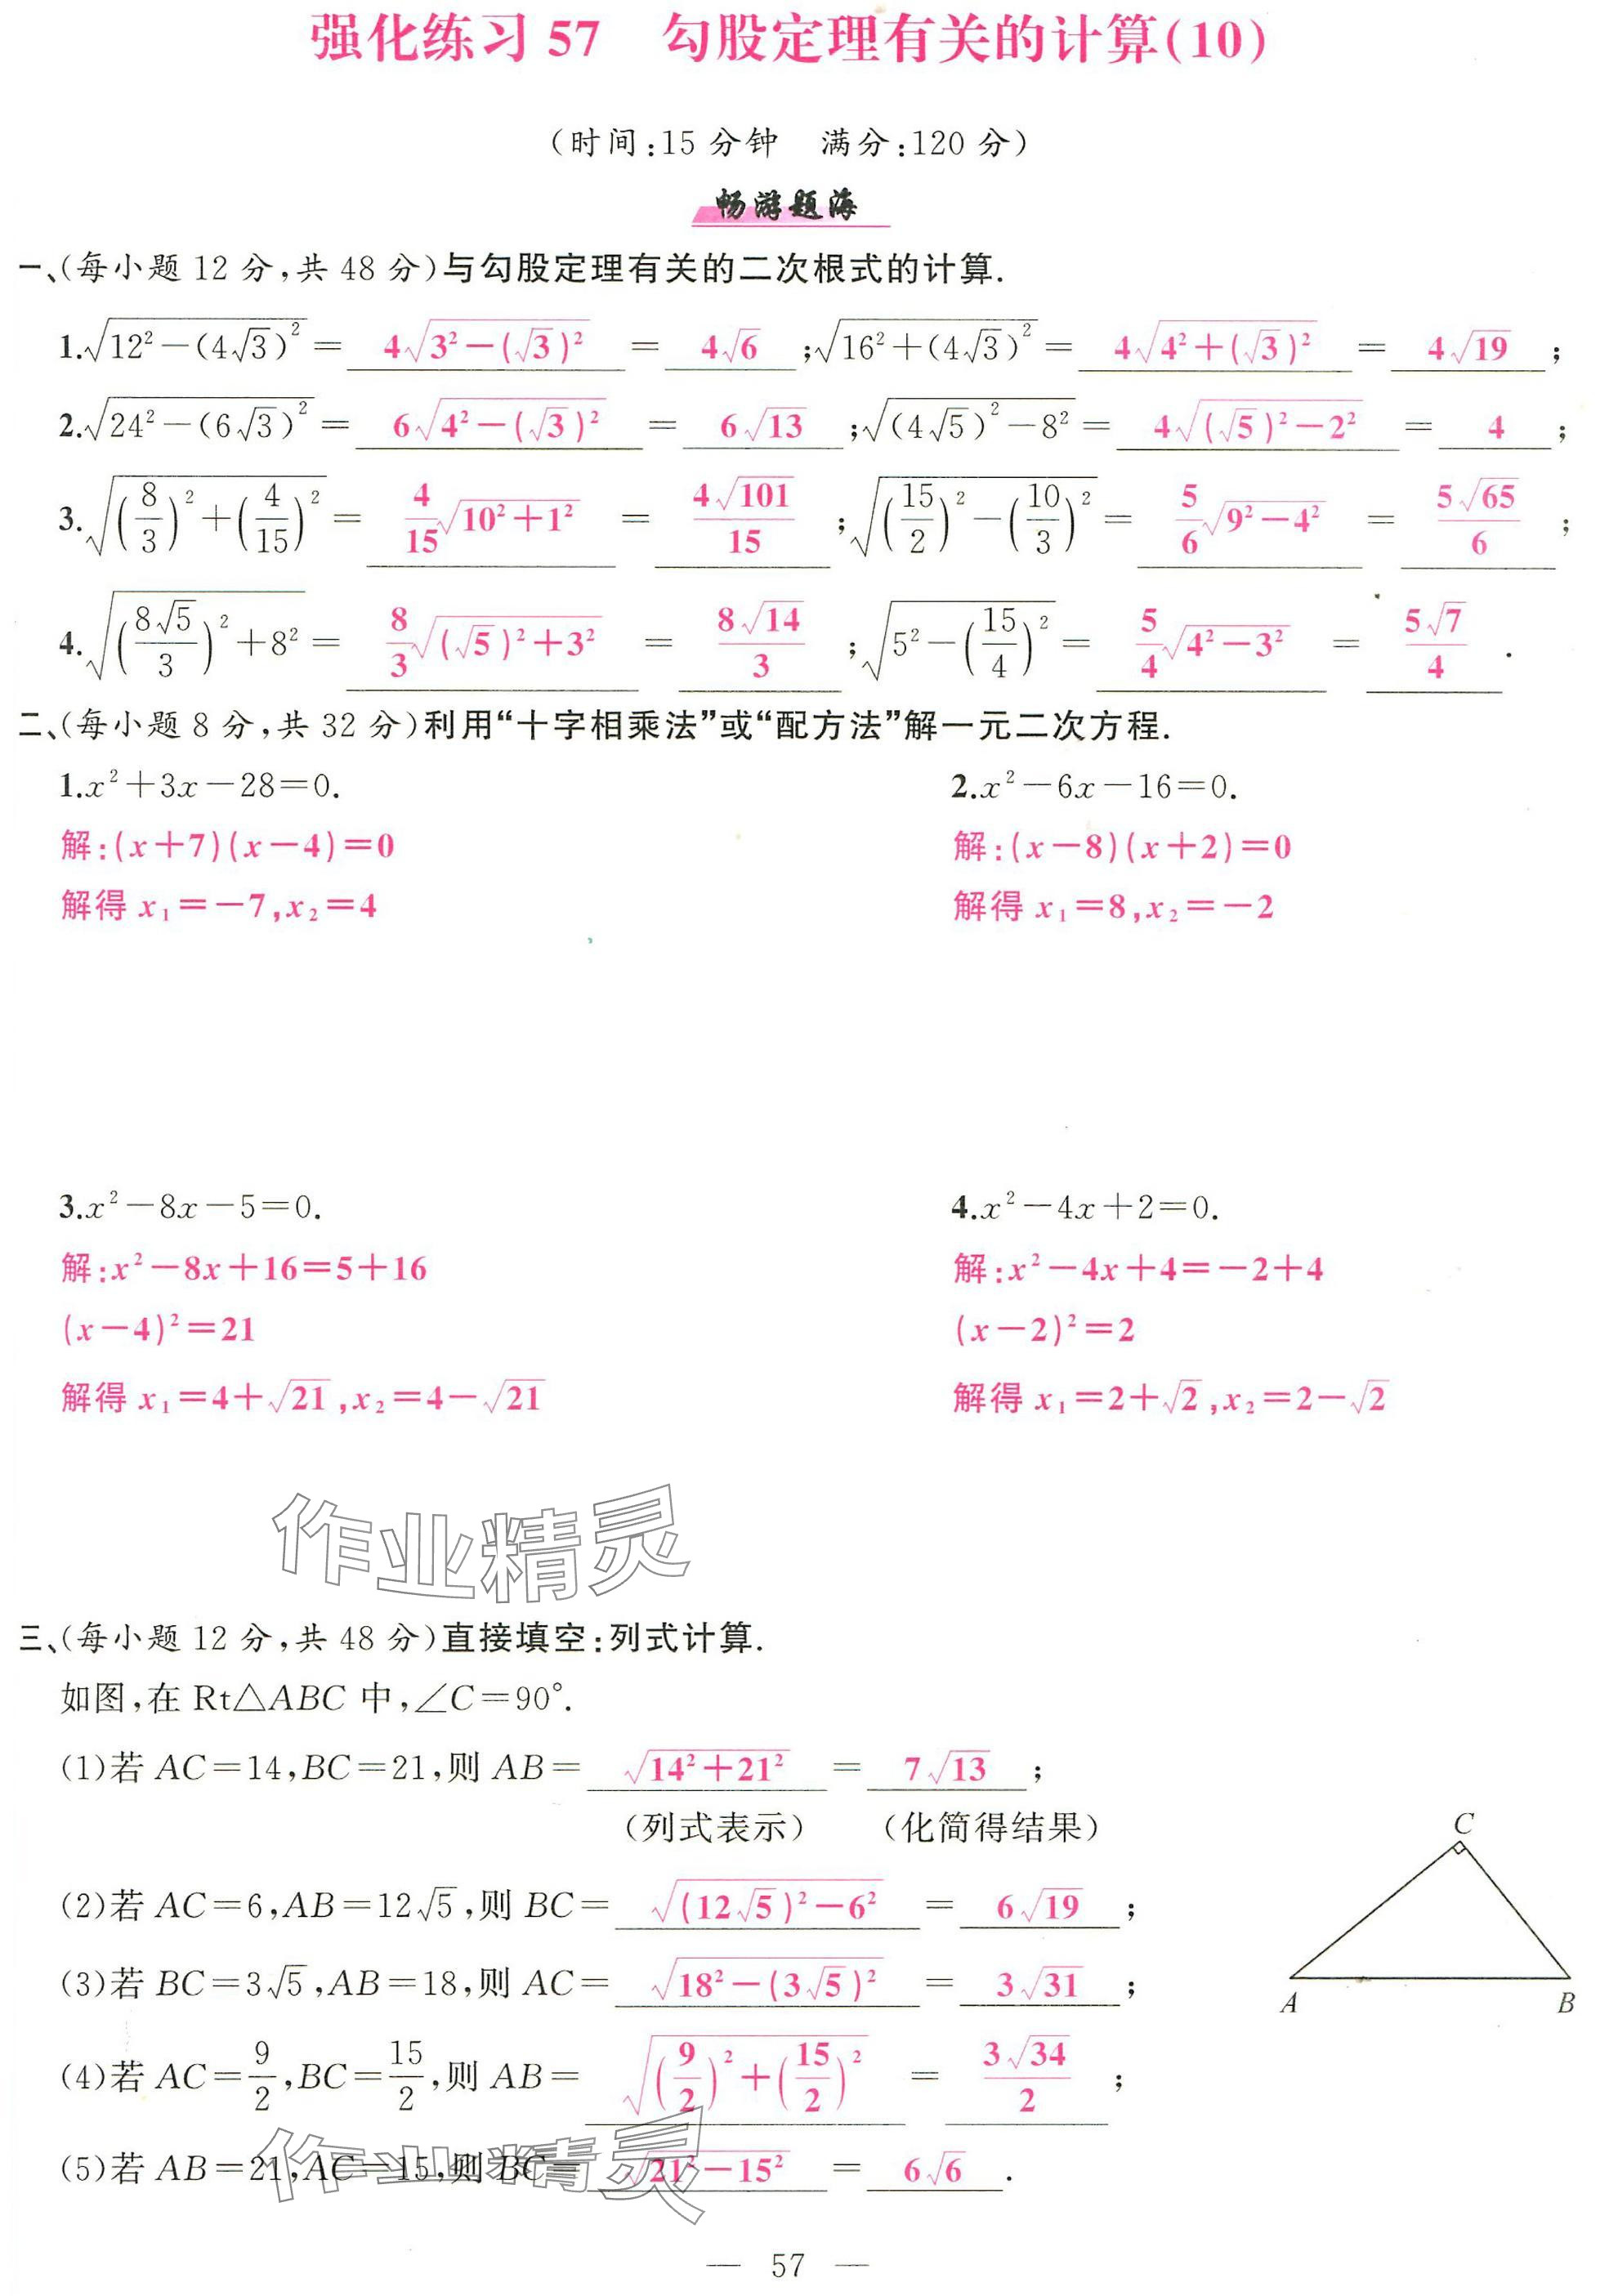 强化练习 57　勾股定理有关的计算(10)
(时间:15 分钟　满分:120 分)
畅游题海
一、(每小题 12 分,共 48 分)与勾股定理有关的二次根式的计算.
1.√(12²－(4√3)²)＝ 4√(3²－(√3)²) ＝ 4√6 ;√(16²＋(4√3)²)＝ 4√(4²＋(√3)²) ＝ 4√19 ;
2.√(24²－(6√3)²)＝ 6√(4²－(√3)²) ＝ 6√13 ;√((4√5)²－8²)＝ 4√((√5)²－2²) ＝ 4 ;
3.√((8/3)²＋(4/15)²)＝ 4/15√(10²＋1²) ＝ 4√101/15 ;√((15/2)²－(10/3)²)＝ 5/6√(9²－4²) ＝ 5√65/6 ;
4.√((8√5/3)²＋8²)＝ 8/3√((√5)²＋3²) ＝ 8√14/3 ;√(5²－(15/4)²)＝ 5/4√(4²－3²) ＝ 5√7/4 .
二、(每小题 8 分,共 32 分)利用“十字相乘法”或“配方法”解一元二次方程.
1.x²＋3x－28＝0.　2.x²－6x－16＝0.
解:(x＋7)(x－4)＝0　解:(x－8)(x＋2)＝0
解得 x₁＝－7,x₂＝4　解得 x₁＝8,x₂＝－2
3.x²－8x－5＝0.　4.x²－4x＋2＝0.
解:x²－8x＋16＝5＋16　解:x²－4x＋4＝－2＋4
(x－4)²＝21　(x－2)²＝2
解得 x₁＝4＋√21,x₂＝4－√21　解得 x₁＝2＋√2,x₂＝2－√2
作业精灵
三、(每小题 12 分,共 48 分)直接填空:列式计算.
如图,在 Rt△ABC 中,∠C＝90°.
(1)若 AC＝14,BC＝21,则 AB＝ √(14²＋21²) ＝ 7√13 ;
(列式表示)　(化简得结果)
C
(2)若 AC＝6,AB＝12√5,则 BC＝ √((12√5)²－6²) ＝ 6√19 ;
(3)若 BC＝3√5,AB＝18,则 AC＝ √(18²－(3√5)²) ＝ 3√31 ;
A　B
(4)若 AC＝9/2,BC＝15/2,则 AB＝ √((9/2)²＋(15/2)²) ＝ 3√34/2 ;
(5)若 AB＝21,AC＝15,则 BC＝ √(21²－15²) ＝ 6√6 .
作业精灵
— 57 —